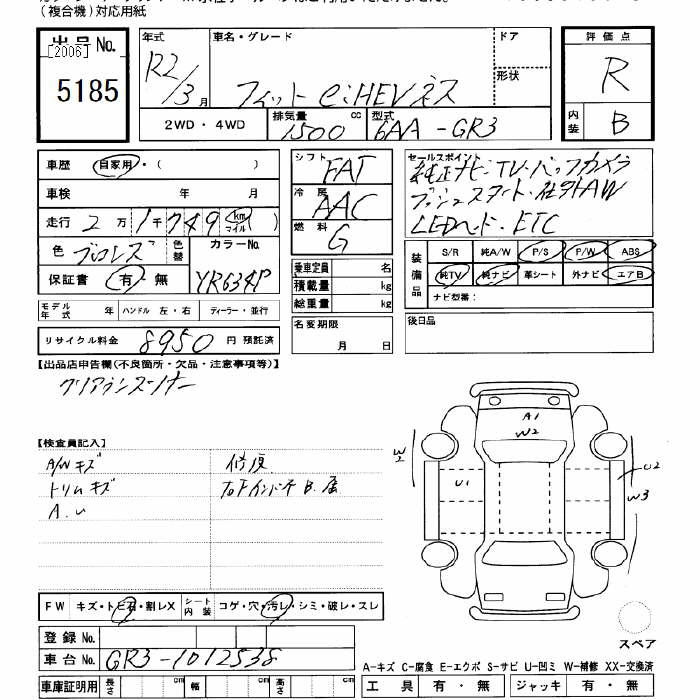 (複合機)対応用紙
出品 No.
[2006]
5185
年式
R2/3月
車名・グレード
フィット e:HEV ネス
ドア
形状
2WD・4WD
排気量
1500 cc
型式
6AA-GR3
評価点
R
内装
B
車歴 自家用・( )
車検 年 月
走行 2万1千749 km マイル
色
色替
カラーNo.
YR634P
保証書 有・無
モデル年式 年 ハンドル 左・右 ディーラー・並行
リサイクル料金 8950 円 預託済
シフト FAT
冷房 AAC
燃料 G
乗車定員 名
積載量 kg
総重量 kg
名変期限
月 日
セールスポイント
純正ナビ・TV・バックカメラ
プッシュスタート・社外AW
LEDヘッド・ETC
装備品
S/R 純A/W P/S P/W ABS
純TV 純ナビ 革シート 外ナビ エアB
ナビ型番:
後日品
【出品店申告欄(不良箇所・欠品・注意事項等)】
クリアランスソナー
【検査員記入】
A/W キズ
トリム キズ
A.U
修復
右Fインパネ B.
A1
W2
W2
U1
U2
W3
スペア
FW キズ・トビ石・割レX シート内装 コゲ・穴・汚レ・シミ・破レ・スレ
登録 No.
車台 No. GR3-1012538
車庫証明用 長さ cm 幅 cm 高さ cm
A-キズ C-腐食 E-エクボ S-サビ U-凹ミ W-補修 XX-交換済
工具 有・無 ジャッキ 有・無